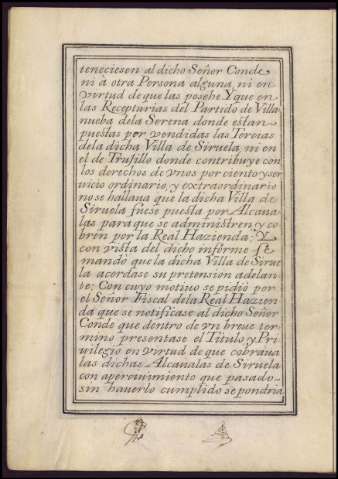 teneciesen al dicho Señor Conde
ni a otra Persona alguna, ni en
virtud de que las posehe. Y que en
las Recepturias del Partido de Villa
nueba dela Serena donde estan
puestas por vendidas las Tercias
dela dicha Villa de Siruela, ni en
el de Truxillo donde contribuye con
los derechos de vnos por ciento y ser
uicio ordinario, y extraordinario
no se hallaua que la dicha Villa de
Siruela fuese puesta por Alcaua
las para que se administren y co
bren por la Real Hazienda: Y
con vista del dicho informe se
mandò que la dicha Villa de Sirue
la acordase su pretension adelan
te: Con cuyo motiuo se pidiò por
el Señor Fiscal dela Real Hazien
da que se notificase al dicho Señor
Conde que dentro de vn breue ter
mino presentase el Titulo y Pri
uilegio en virtud de que cobraua
las dichas Alcaualas de Siruela
con aperciuimiento que pasado
sin hauerlo cumplido se pondria